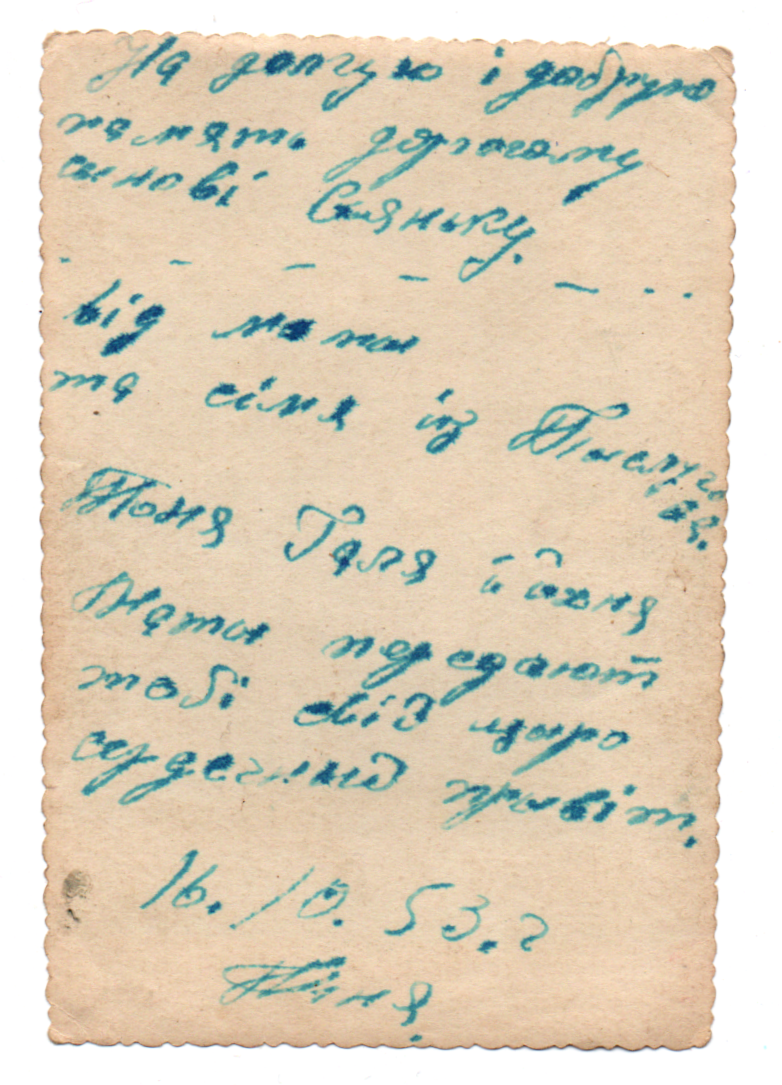 На долгую і добрую
память дорогому
синові Сяньку.
від мати
та сімя із
Тоня Галя і їхня
Мати передають
тобі свій щиро
сердечний привіт.
16. 10. 53. г
Таня.